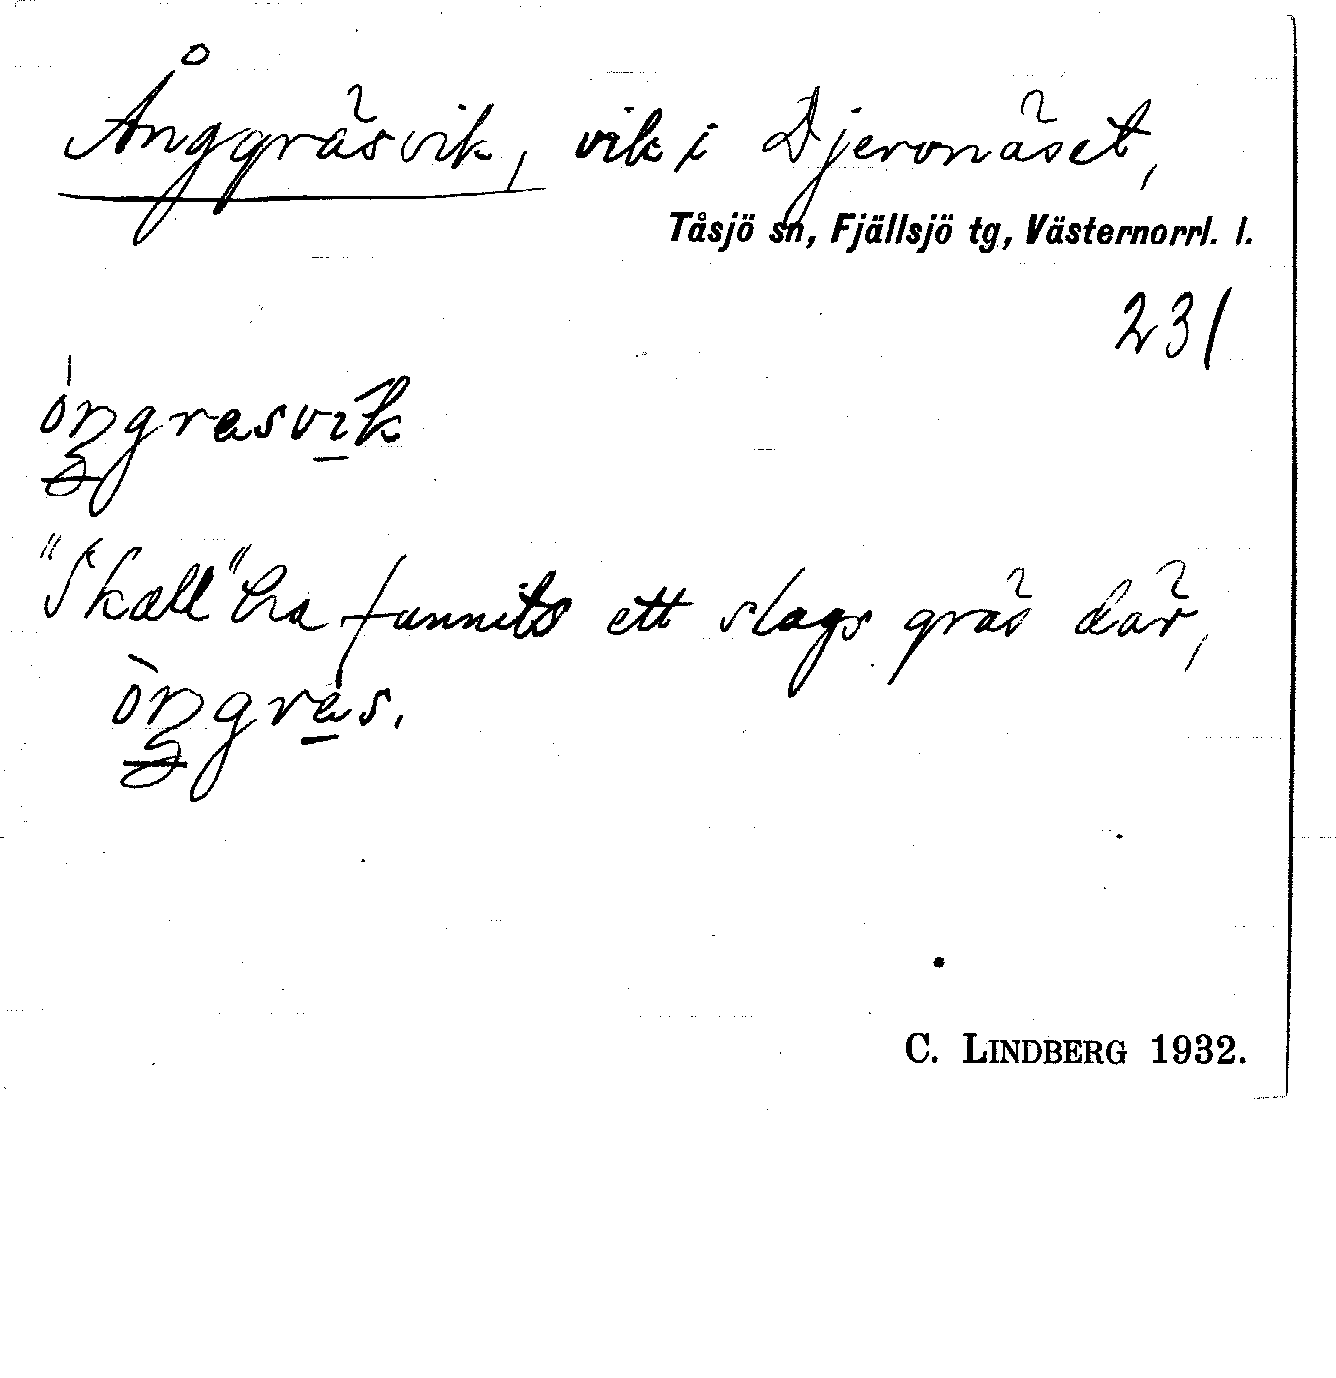 Ånggräsvik, vik i Djeronäset,
Tåsjö sn, Fjällsjö tg, Västernorrl. l.
231
"Skall" ha funnits ett slags gräs där,
C. LINDBERG 1932.